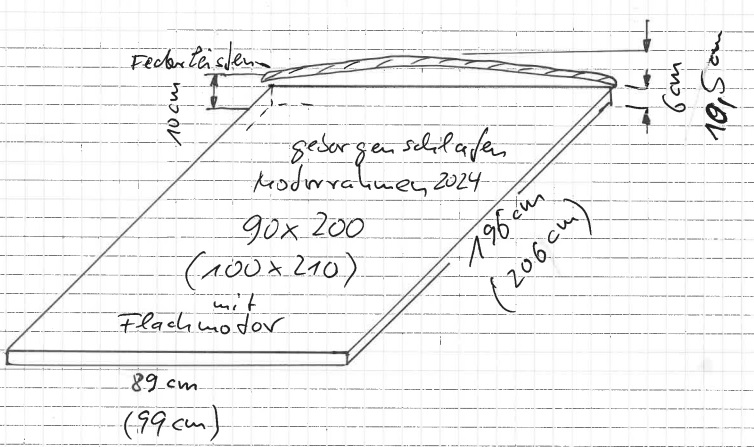 Federleisten
10 cm
6 cm
10,5 cm
geborgen schlafen
Motorrahmen 2024
90 x 200
(100 x 210)
mit
Flachmotor
196 cm
(206 cm)
89 cm
(99 cm)